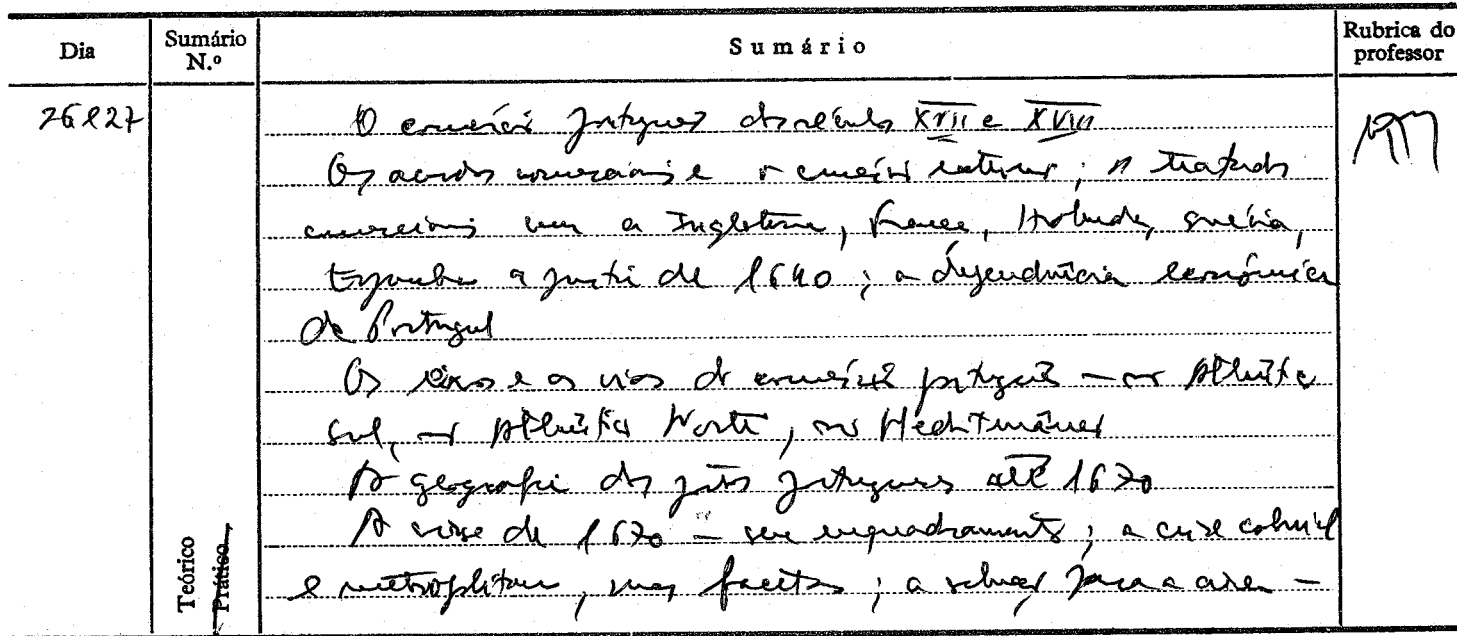 Dia
Sumário N.º
Sumário
Rubrica do professor
26 e 27
O comércio português dos séculos XVII e XVIII
Os acordos comerciais e o comércio externo; os tratados
comerciais com a Inglaterra, França, Holanda, Suécia,
Espanha a partir de 1640; a dependência económica
de Portugal
Os eixos e as vias do comércio português — no Atlântico
Sul, no Atlântico Norte, no Mediterrâneo
A geografia dos portos portugueses até 1670
A crise de 1670 – seu enquadramento; a crise colonial
e metropolitana, suas facetas; a solução para a crise –
Teórico
Prático